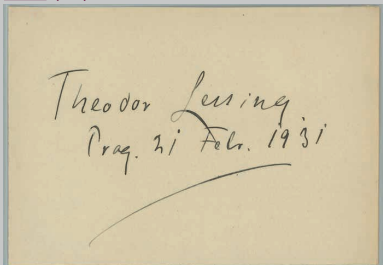 Theodor Lessing
Prag. 21 Febr. 1931